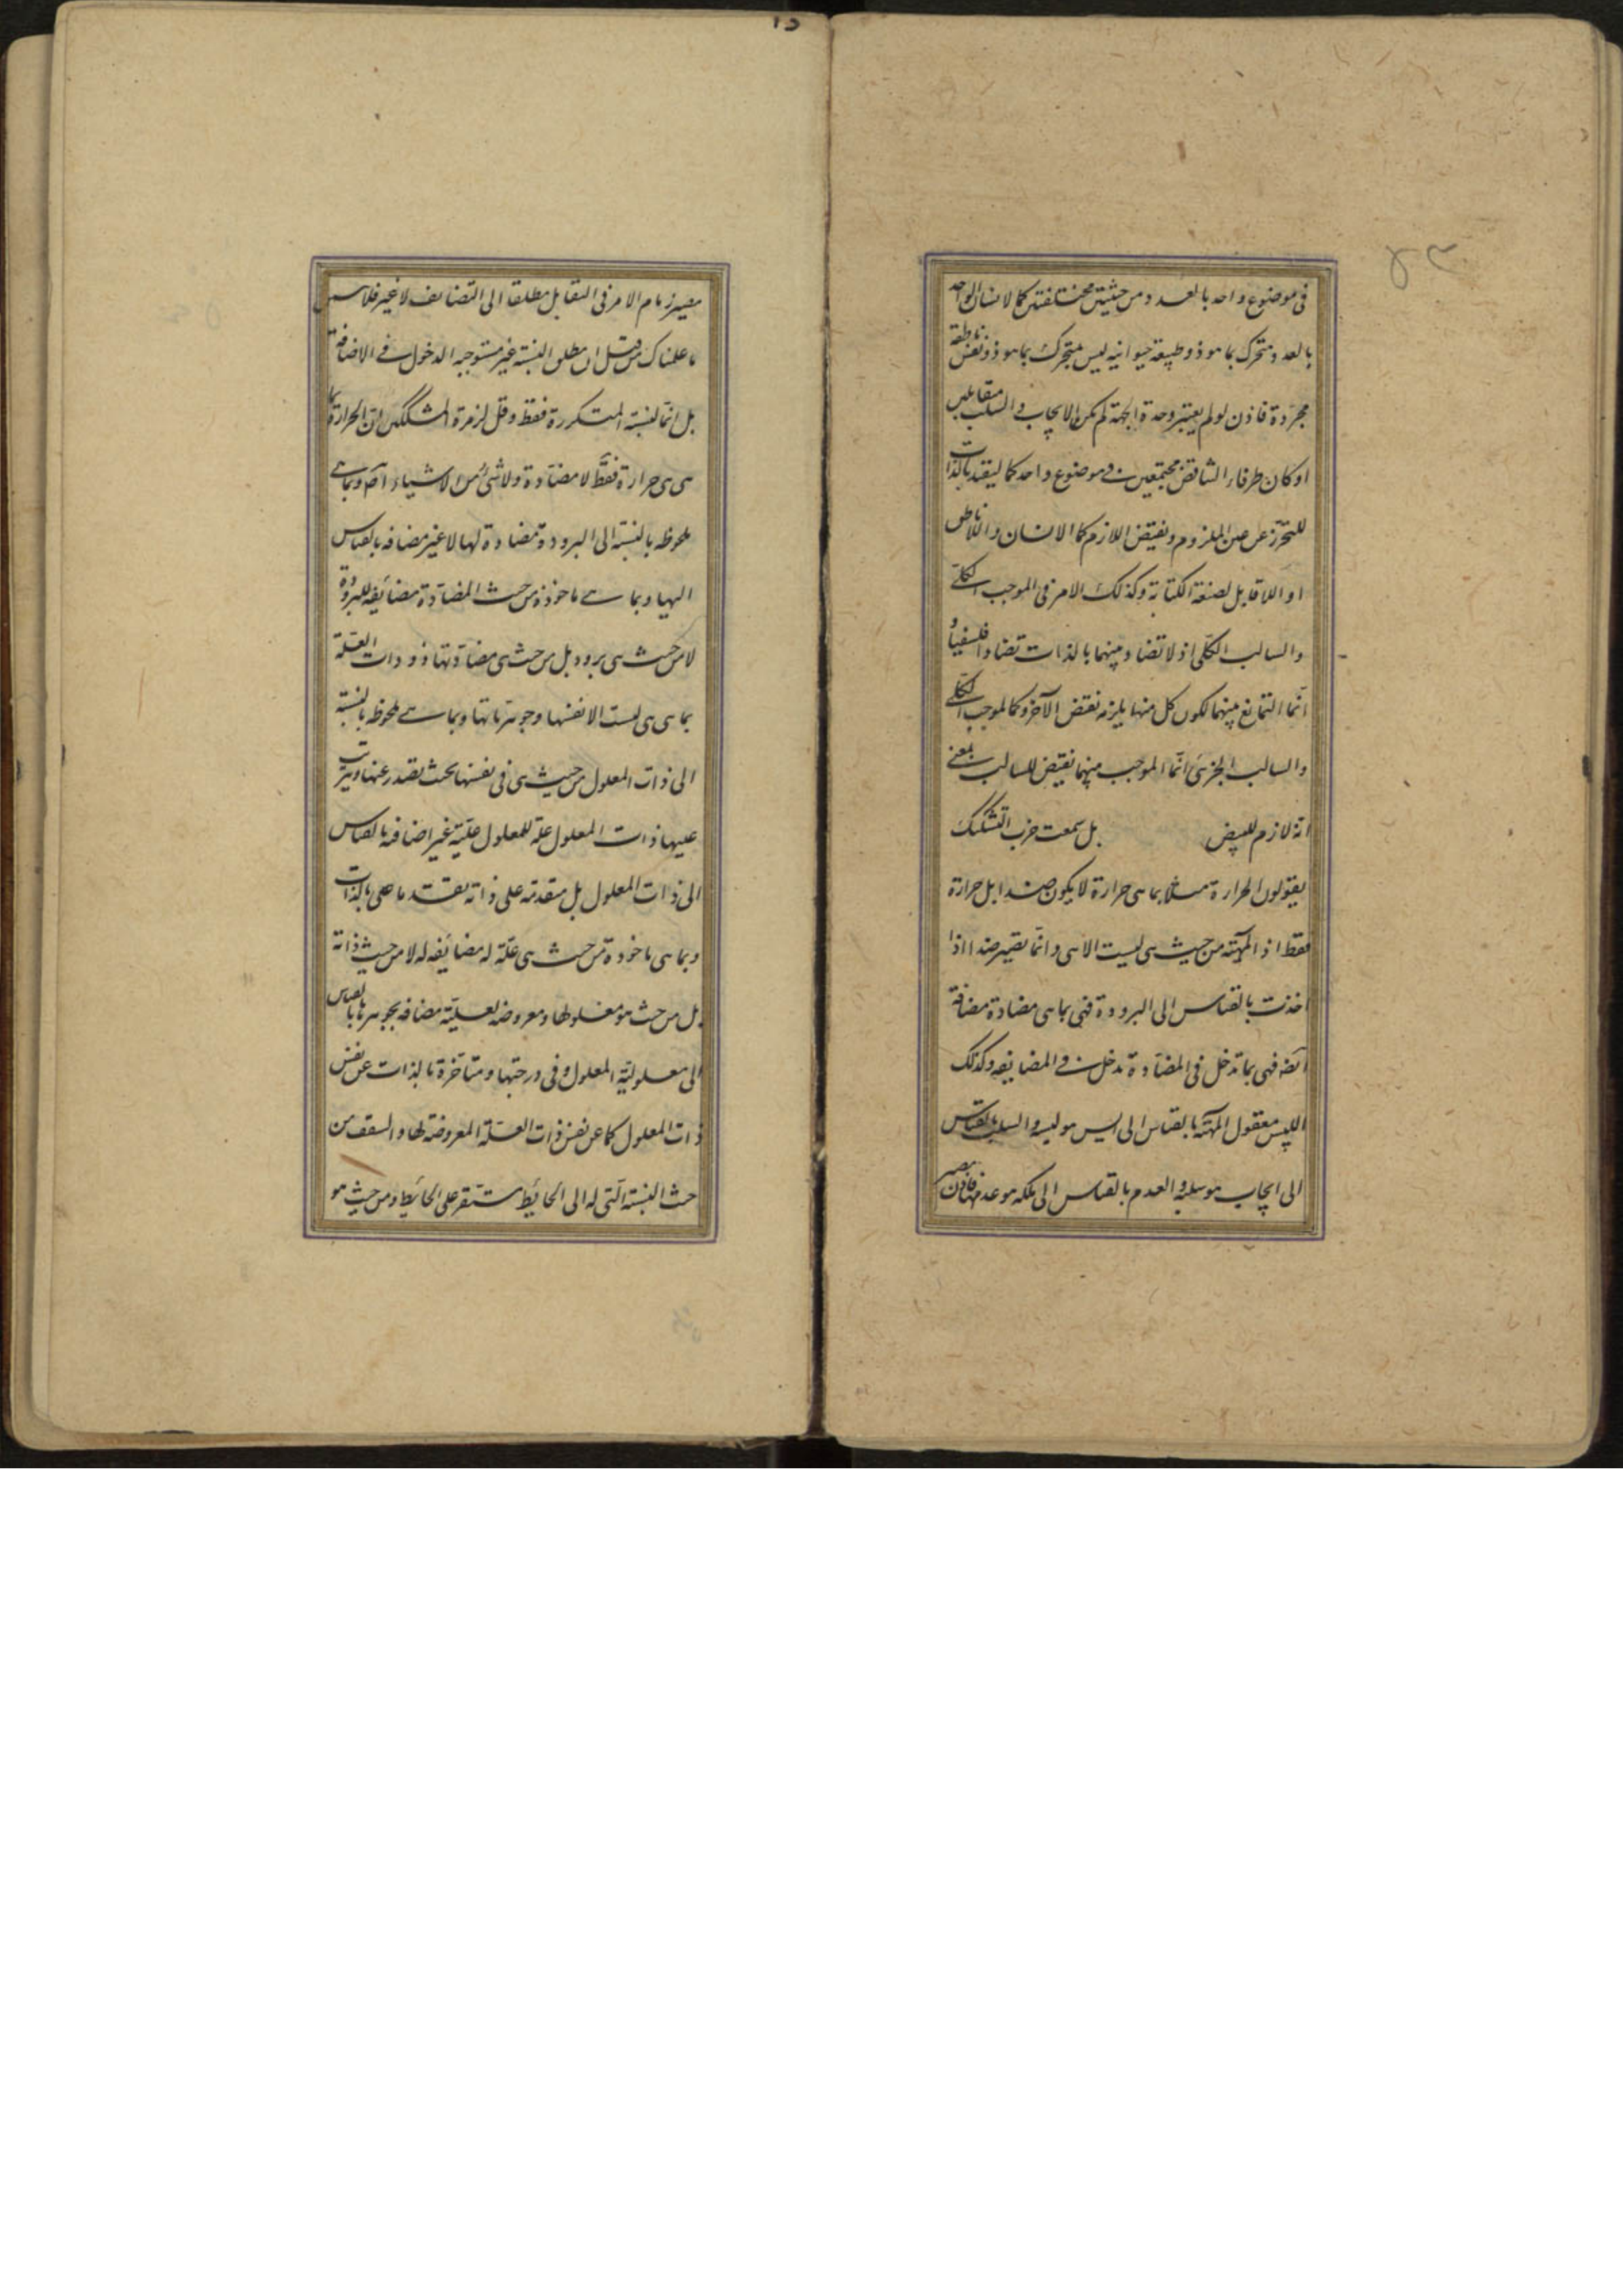 في موضوع واحد بالعدد ومن حيثيتين مختلفتين كالانسان الواحد
بالعدد متحرك بما هو ذو طبيعة حيوانيه ليس بمتحرك بما هو ذو نفس ناطقة
مجردة فاذن لو لم يعتبر وحدة الجهة لم يكن الايجاب والسلب متقابلين
او كان طرفا التناقض مجتمعين في موضوع واحد كما ليقيد بالذات
للتحرز عن عين الملزوم ونقيض اللازم كالانسان واللاناطق
او اللاقابل لصنعة الكتابة وكذلك الامر في الموجب الكلي
والسالب الكلي اذ لا تضاد بينهما بالذات تضادا فلسفيا و
انما التمانع بينهما لكون كل منهما يلزمه نقيض الآخر وكالموجب الكلي
والسالب الجزئي انما الموجب منهما نقيض للسالب بمعنى
انه لازم للنقيض بل سمعت حزب التشكيك
يقولون الحرارة مثلا بما هي حرارة لا يكون ضدا بل حرارة
فقط اذ المهية من حيث هي ليست الا هي وانما تصير ضدا اذا
اخذت بالقياس الى البرودة فهي بما هي مضادة مضافة
ايضه فهي بما تدخل في المضادة تدخل في المضايفه وكذلك
الليس معقول المهية بالقياس الى ايس هو ليسه والسلب بالقياس
الى ايجاب هو سلبه والعدم بالقياس الى ملكه هو عدمها فاذن مصير
مصير زمام الامر في التقابل مطلقا الى التضايف لا غير فلا
ما علمناك من قبل ان مطلق النسبة غير مستوجبه الدخول في الاضافة
بل انما لنسبته المتكررة فقط وقل لزمرة المشككين ان الحرارة بما
هي هي حرارة فقط لا مضادة ولا شئ من الاشياء آخر وبما هي
ملحوظه بالنسبة الى البرودة مضادة لها لا غير مضافه بالقياس
اليها وبما هي ماخوذة من حيث المضادة مضائفه للبرودة
لا من حيث هي برودة بل من حيث هي مضادتها وذات العلة
بما هي هي ليست الا نفسها وجوهرياتها وبما هي ملحوظه بالنسبة
الى ذات المعلول من حيث هي في نفسها بحيث تصدر عنها وتترتب
عليها ذات المعلول علة للمعلول علية غير اضافه بالقياس
الى ذات المعلول بل متقدمه على ذاته تقدما على بالذات
وبما هي ماخوذة من حيث هي علة له مضائفه له لا من حيث ذاته
بل من حيث هو معلولها ومعروضه لعلية مضافه بجوهرها بالقياس
الى معلولية المعلول وفي درجتها ومتاخرة بالذات عن نفس
ذات المعلول كما عن نفس ذات العلة المعروضة لها والسقف من
حيث النسبة التي له الى الحائط مستقر على الحائط ومن حيث هو